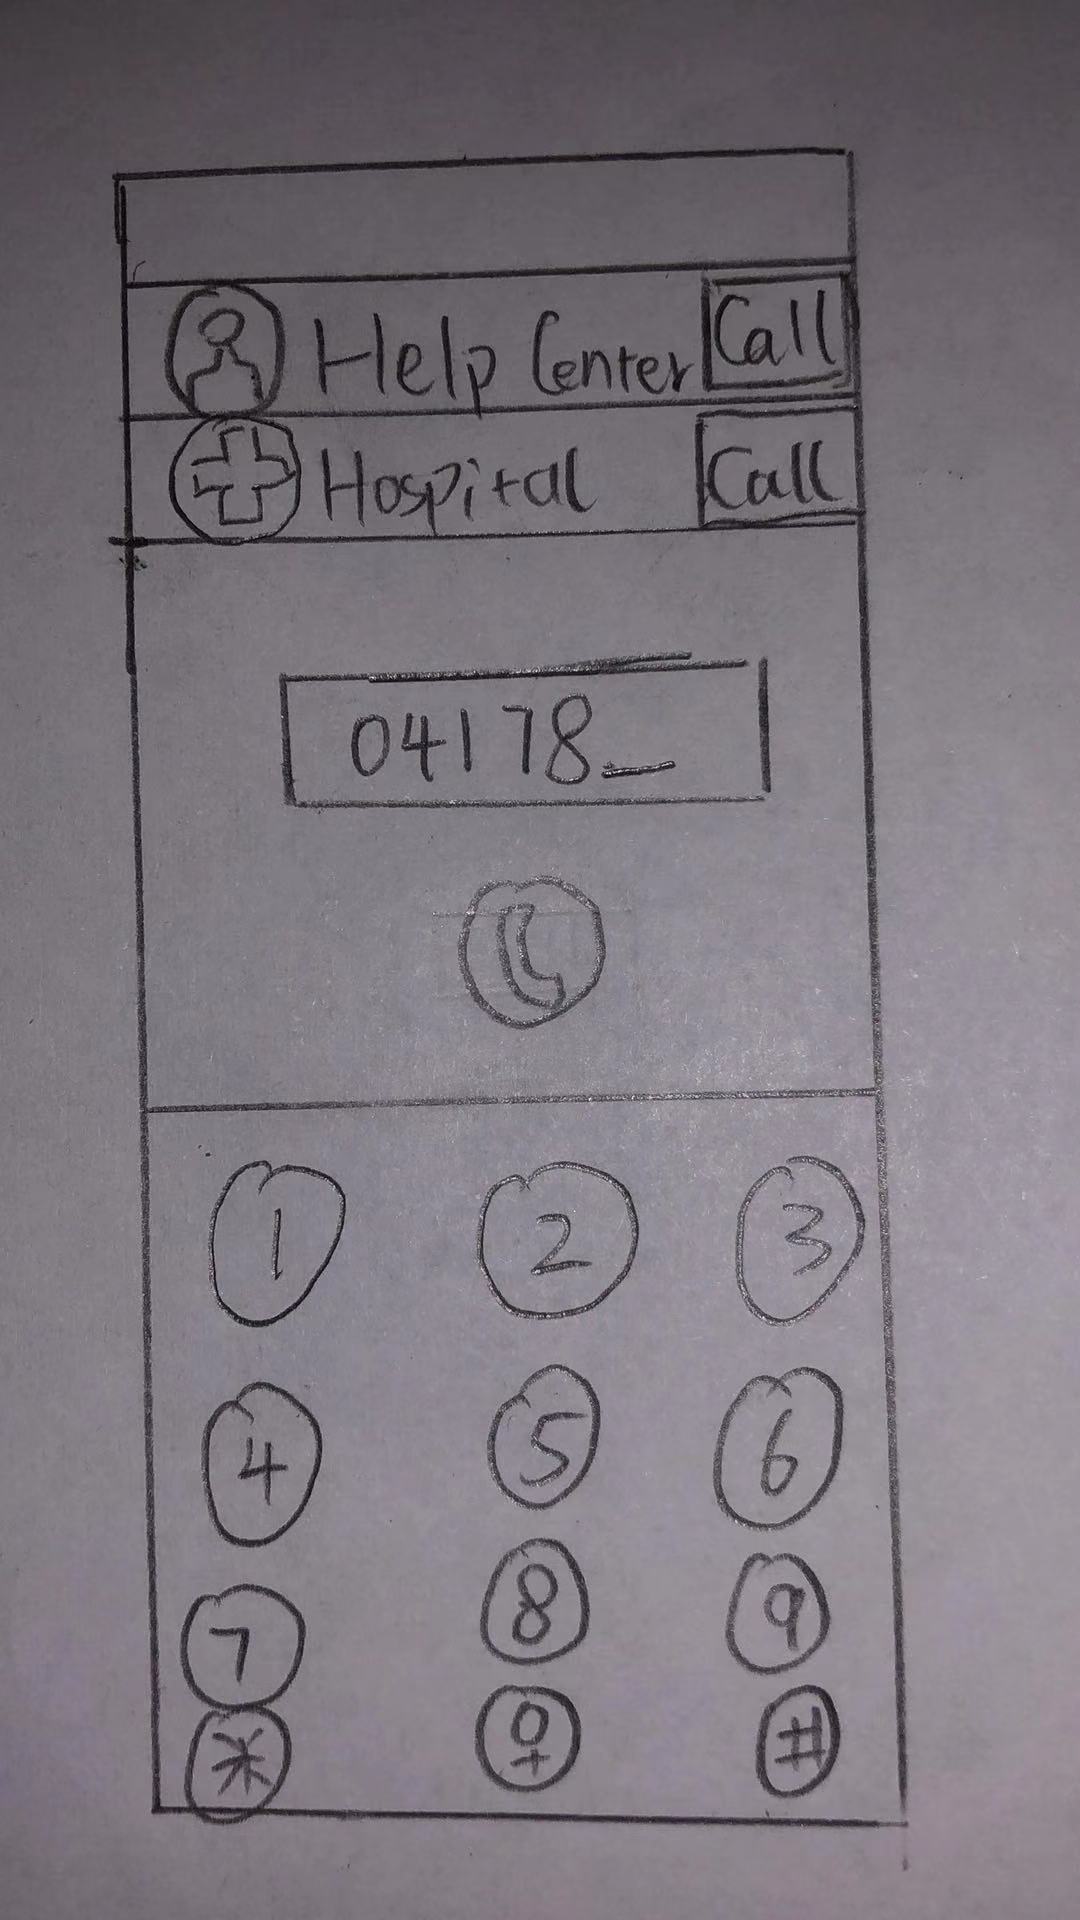 Help Center Call
Hospital Call
04178_
1 2 3
4 5 6
7 8 9
* 0 #
+